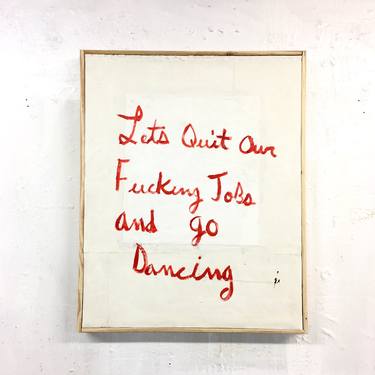 Lets Quit Our
Fucking Jobs
and go
Dancing